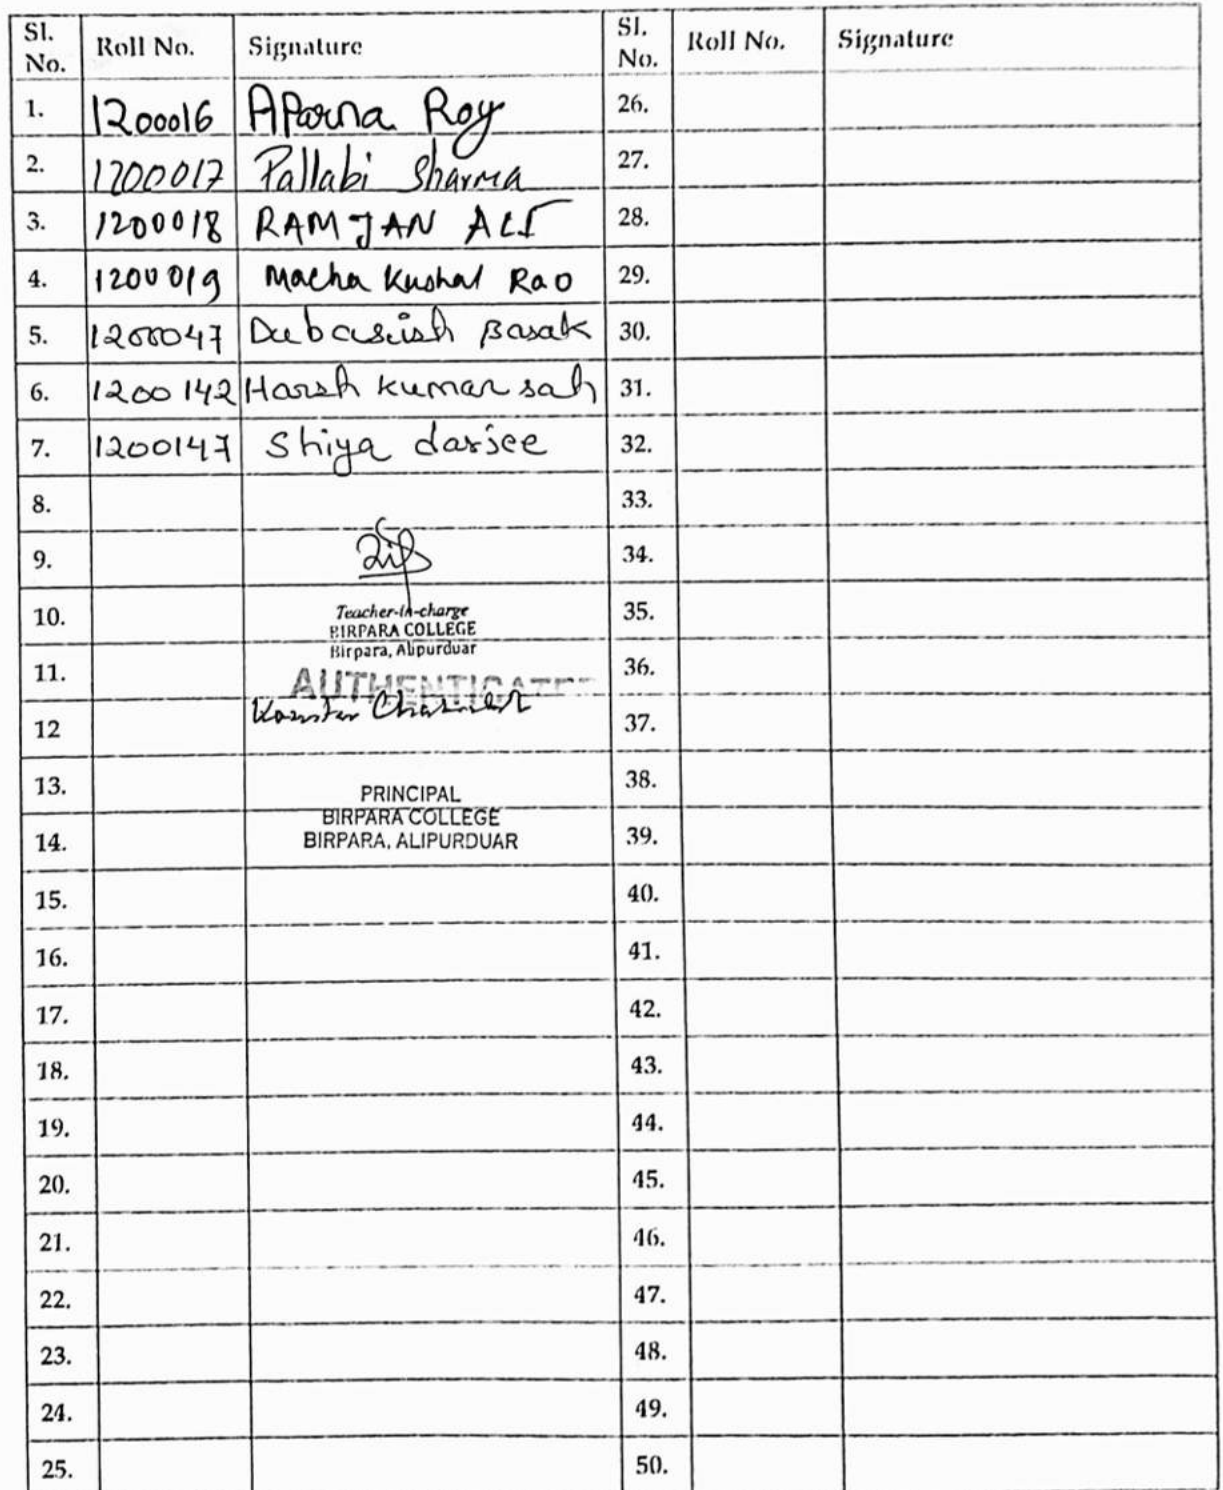 Sl. No. Roll No. Signature Sl. No. Roll No. Signature
1. 1200016 Aparna Roy 26.
2. 1200017 Pallabi Sharma 27.
3. 1200018 RAMJAN ALI 28.
4. 1200019 Macha Kushal Rao 29.
5. 1200047 Debasish Basak 30.
6. 1200142 Harsh kumar sah 31.
7. 1200147 Shiya darjee 32.
8. 33.
9. 34.
10. Teacher-in-charge 35.
BIRPARA COLLEGE
Birpara, Alipurduar
11. AUTHENTICATED 36.
12 37.
13. PRINCIPAL 38.
BIRPARA COLLEGE
14. BIRPARA, ALIPURDUAR 39.
15. 40.
16. 41.
17. 42.
18. 43.
19. 44.
20. 45.
21. 46.
22. 47.
23. 48.
24. 49.
25. 50.